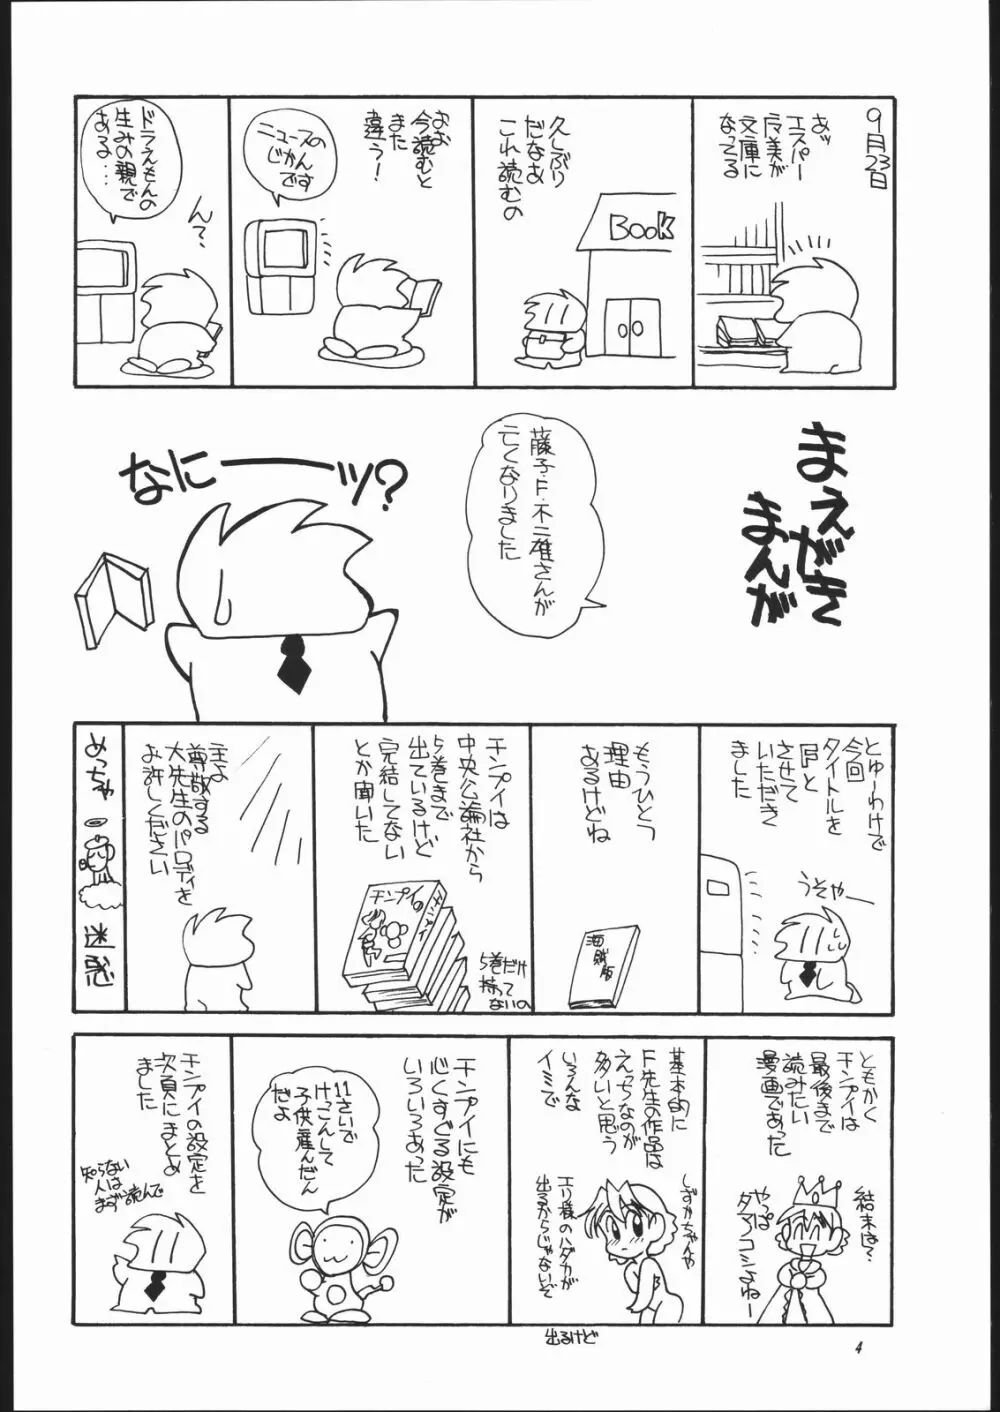 9月23日
あッ
エスパー
魔美が
文庫に
なってる
久しぶり
だなぁ
これ読むの
BOOK
おお
今読むと
また
違う!
ニュースの
じかんです
ん?
ドラえもんの
生みの親で
ある…
まえがき
まんが
藤子・F・不二雄さんが
亡くなりました
なにーーッ?
とゆーわけで
今回
タイトルを
「F」と
させて
いただき
ました
うそやー
もうひとつ
理由
あるけどね
海賊版
チンプイは
中央公論社から
5巻まで
出ているけど
完結してない
とか聞いた
チンプイ
5巻だけ
持って
ないの
主よ
尊敬する
大先生のパロディを
お許しください
めっちゃ
迷惑
ともかく
チンプイは
最後まで
読みたい
漫画であった
結末は?
やっぱ
タマのコシよねー
基本的に
F先生の作品は
えっちなのが
多いと思う
いろんな
イミで
しずかちゃんや
エリ様のハダカが
出るからじゃないぞ
出るけど
チンプイにも
心くすぐる設定が
いろいろあった
11さいで
けっこんして
子供産んだん
だよ
チンプイの設定を
次頁にまとめ
ました
知らない
人は
まず読んで
4